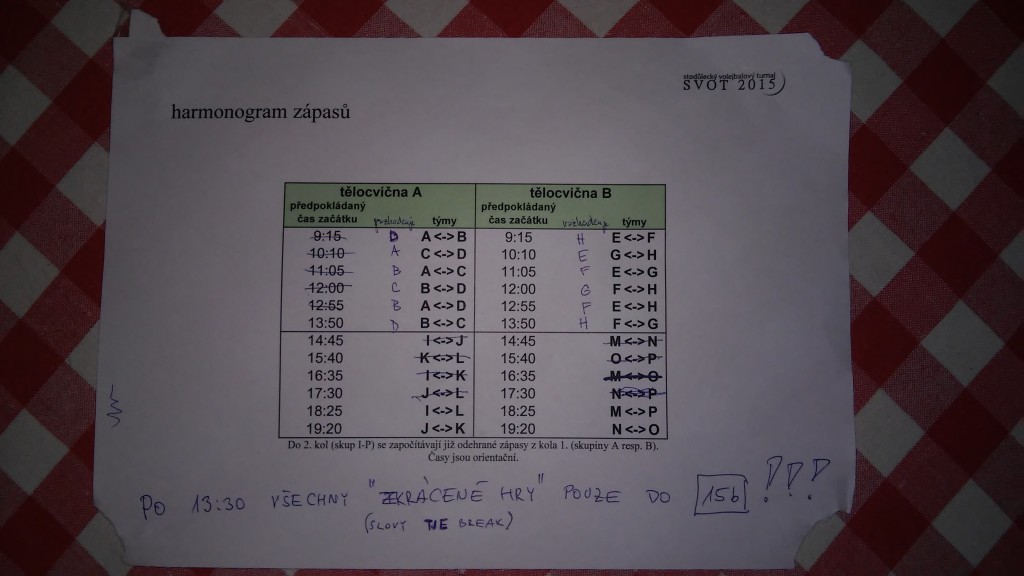 stodůlecký volejbalový turnaj
SVOT 2015
harmonogram zápasů
tělocvična A tělocvična B
předpokládaný předpokládaný
čas začátku týmy čas začátku týmy
9:15 D A <-> B 9:15 H E <-> F
10:10 A C <-> D 10:10 E G <-> H
11:05 B A <-> C 11:05 F E <-> G
12:00 C B <-> D 12:00 G F <-> H
12:55 B A <-> D 12:55 F E <-> H
13:50 D B <-> C 13:50 H F <-> G
14:45 I <-> J 14:45 M <-> N
15:40 K <-> L 15:40 O <-> P
16:35 I <-> K 16:35 M <-> O
17:30 J <-> L 17:30 N <-> P
18:25 I <-> L 18:25 M <-> P
19:20 J <-> K 19:20 N <-> O
Do 2. kol (skup I-P) se započítávají již odehrané zápasy z kola 1. (skupiny A resp. B).
Časy jsou orientační.
PO 13:30 VŠECHNY "ZKRÁCENÉ HRY" POUZE DO 15b !!!
(SLOVY TIE BREAK)